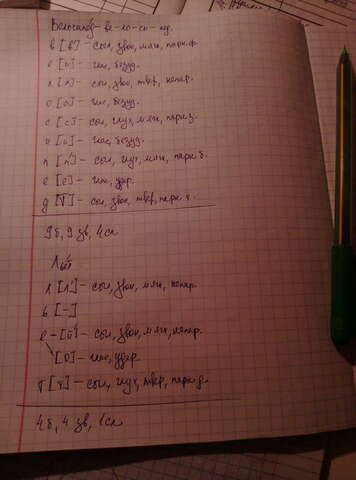 Велосипед - ве - ло - си - пед.
в [в'] - согл, звон, мягк, парн.ф.
е [и] - глас, безуд.
л [л] - согл, звон, твёр, непар.
о [о] - глас, безуд.
с [с'] - согл, глух, мягк, парн.з.
и [и] - глас, безуд.
п [п'] - согл, глух, мягк, парн.б.
е [е] - глас, удар.
д [т] - согл, звон, твёр, парн.т.
9 б, 9 зв, 4 сл
Льёт
л [л'] - согл, звон, мягк, непар.
ь [-]
ё - [й'] - согл, звон, мягк, непар.
[о] - глас, удар.
т [т] - согл, глух, твёр, парн.д.
4 б, 4 зв, 1 сл